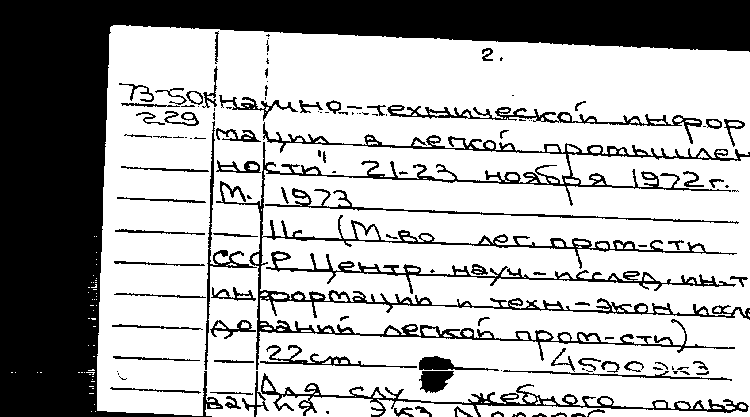 2.
73-50к научно-технической инфор
229
мации в легкой промышлен
ности". 21-23 ноября 1972г.
М., 1973
11с (М-во лег. пром-сти
СССР Центр. науч.-исслед. ин-т
информации и техн.-экон. иссле
дований легкой пром-сти).
22см. 4500экз
Для слу жебного пользо
вания. Экз